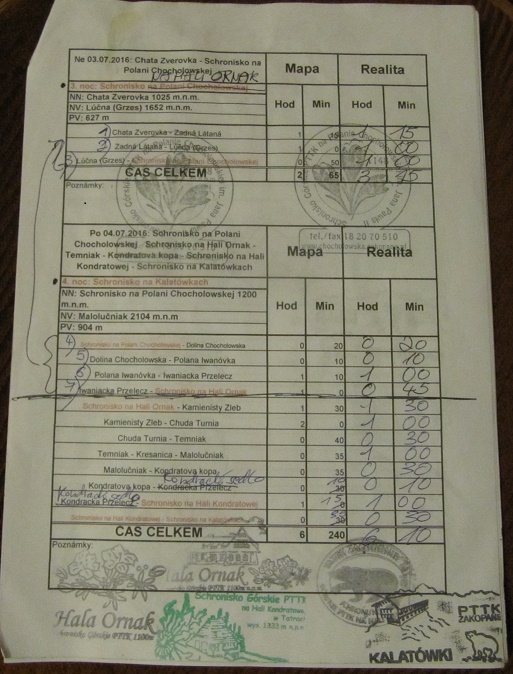 Ne 03.07.2016: Chata Zverovka - Schronisko na
Polani Chocholowskej
NA HALI ORNAK
Mapa Realita
3. noc: Schronisko na Polani Chocholowskej
NN: Chata Zverovka 1025 m.n.m.
NV: Lúčna (Grzes) 1652 m.n.m.
PV: 627 m
Hod Min Hod Min
1 Chata Zverovka - Zadná Látaná 1 1 15
2 Zadná Látaná - Lúčna (Grzes) 1 0 1 00
3 Lúčna (Grzes) - Chocholowskej 0 50 1 00
CAS CELKEM 2 65 3 15
Poznámky:
tel./fax 18 20 70 510
Po 04.07.2016: Schronisko na Polani
Chocholowskej - Schronisko na Hali Ornak -
Temniak - Kondratova kopa - Schronisko na Hali
Kondratowej - Schronisko na Kalatówkach
Mapa Realita
4. noc: Schronisko na Kalatówkach
NN: Schronisko na Polani Chocholowskej 1200
m.n.m.
NV: Malolučniak 2104 m.n.m
PV: 904 m
Hod Min Hod Min
4) Schronisko na Polani Chocholowskej - Dolina Chocholowska 0 20 0 20
5) Dolina Chocholowska - Polana Iwanóvka 0 10 0 10
6) Polana Iwanóvka - Iwaniacka Przelecz 1 10 1 00
7) Iwaniacka Przelecz - Schronisko na Hali Ornak 1 0 0 45
Schronisko na Hali Ornak - Kamienisty Zleb 1 30 1 30
Kamienisty Zleb - Chuda Turnia 2 0 1 00
Chuda Turnia - Temniak 0 40 0 30
Temniak - Kresanica - Malolučniak 1 35 1 00
Malolučniak - Kondratova kopa 0 35 0 30
Kondratova kopa - Kondracka Przelecz 0 10 0 10
Kondracka Przelecz - Schronisko na Hali Kondratowej 1 15 1 00
Schronisko na Hali Kondratowej - Schronisko na Kalatówkach 0 30 0 30
CAS CELKEM 6 240 10
Poznámky:
Hala Ornak
Hala Ornak
Schronisko Górskie PTTK
na Hali Kondratowej
w Tatrach
wys. 1333 m n.p.m.
PTTK
ZAKOPANE
KALATÓWKI